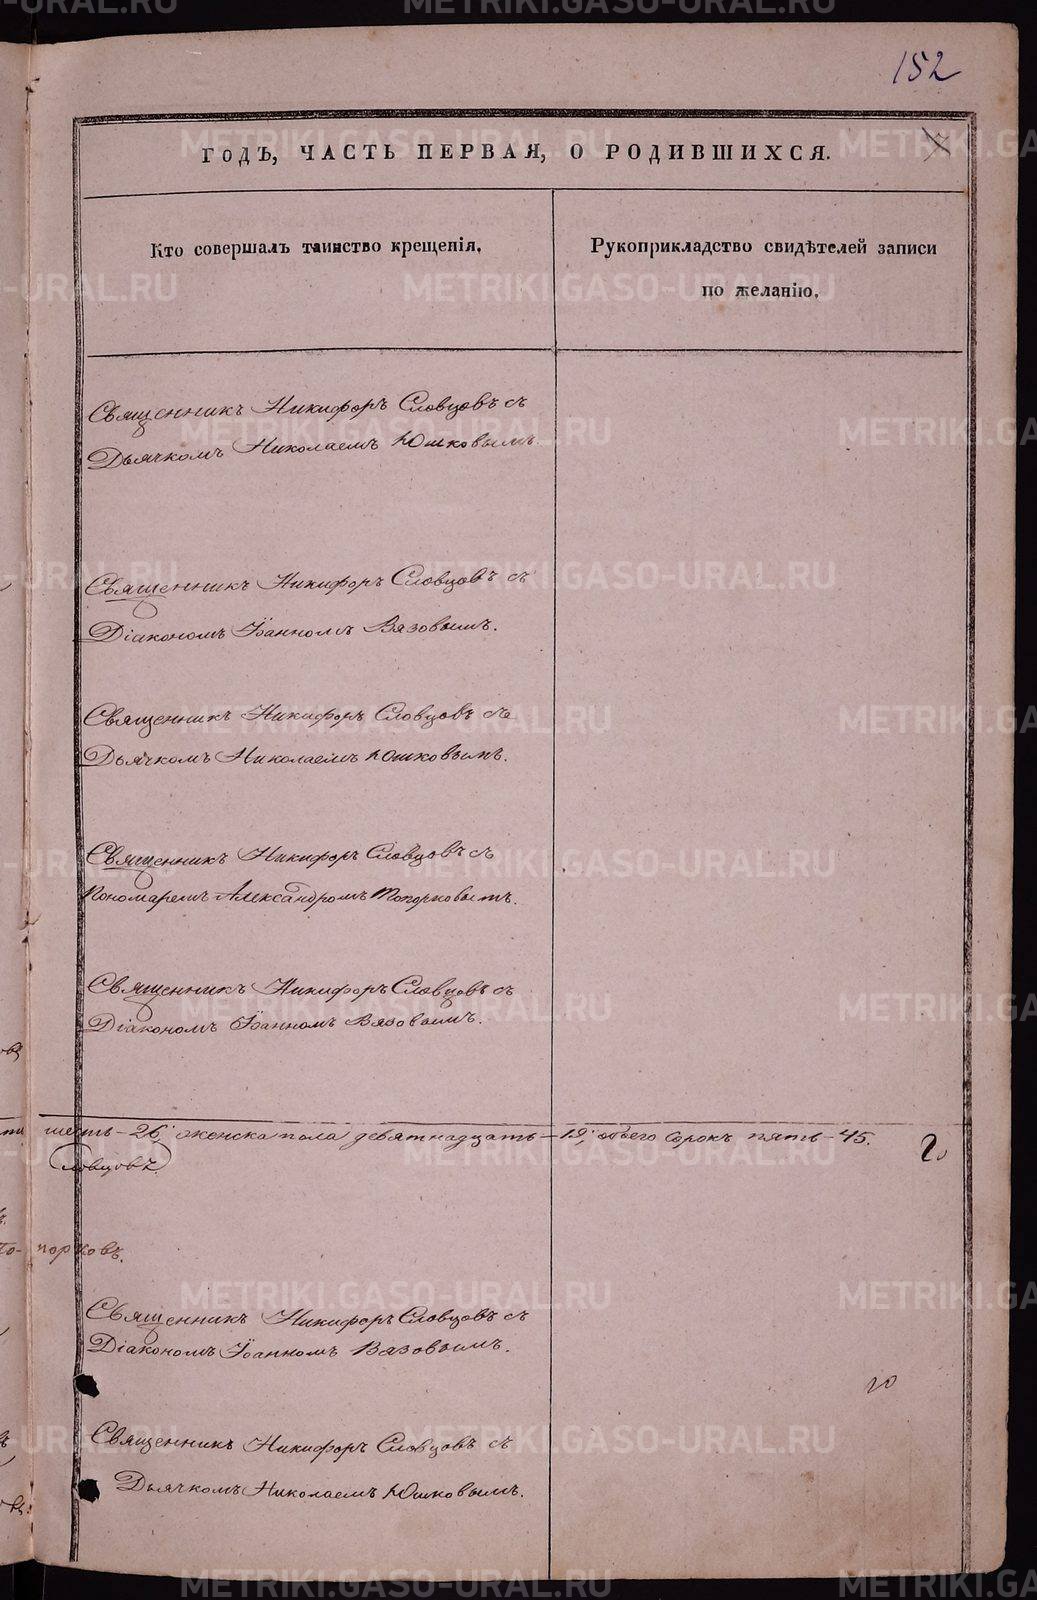 152
ГОДЪ, ЧАСТЬ ПЕРВАЯ, О РОДИВШИХСЯ.
Кто совершалъ таинство крещенія.
Рукоприкладство свидѣтелей записи
по желанію.
Священникъ Никифоръ Словцовъ съ
Дьячкомъ Николаемъ Юшковымъ.
Священникъ Никифоръ Словцовъ съ
Діакономъ Іоанномъ Вязовымъ.
Священникъ Никифоръ Словцовъ съ
Дьячкомъ Николаемъ Юшковымъ.
Священникъ Никифоръ Словцовъ съ
Пономаремъ Александромъ Топорковымъ.
Священникъ Никифоръ Словцовъ съ
Діакономъ Іоанномъ Вязовымъ.
шесть – 26, женска пола девятнадцать – 19, обоего сорокъ пять – 45.
Словцовъ.
То- порковъ.
Священникъ Никифоръ Словцовъ съ
Діакономъ Іоанномъ Вязовымъ.
Священникъ Никифоръ Словцовъ съ
Дьячкомъ Николаемъ Юшковымъ.
METRIKI.GASO-URAL.RU